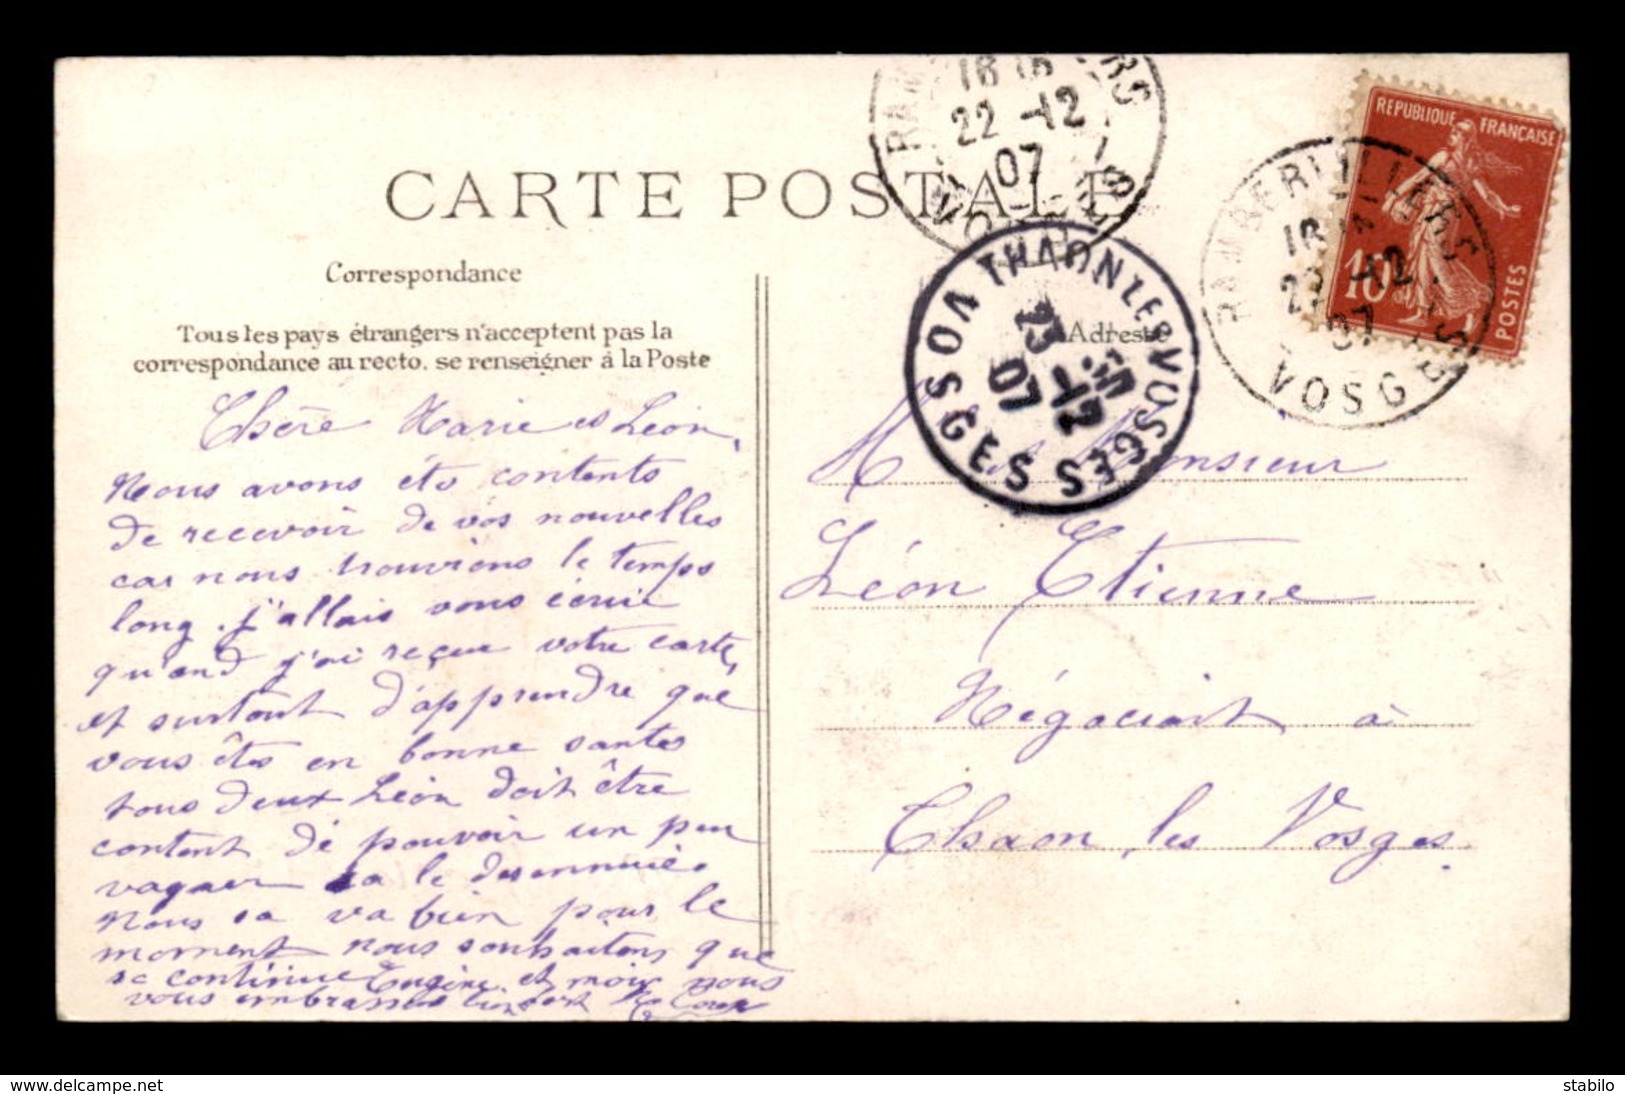 CARTE POSTALE
Correspondance
Tous les pays étrangers n'acceptent pas la
correspondance au recto, se renseigner à la Poste
Adresse
RAMBERVILLERS
22 -12
07
VOSGES
THAON LES VOSGES
VOSGES
23 -12
07
REPUBLIQUE FRANÇAISE
10c
POSTES
Chère Marie et Léon,
Nous avons été contents
de recevoir de vos nouvelles
car nous trouvions le temps
long. j'allais vous écrire
quand j'ai reçue votre carte,
et surtout d'apprendre que
vous êtes en bonne santes
tous deux Léon doit être
content de pouvoir un peu
vaquer sa le desennuie.
Nous sa va bien pour le
moment nous souhaitons que
sa continue Eugène et moi nous
vous embrassons bien fort
Monsieur
Léon Etienne
Négociant à
Thaon les Vosges.
delcampe.net
stabilo